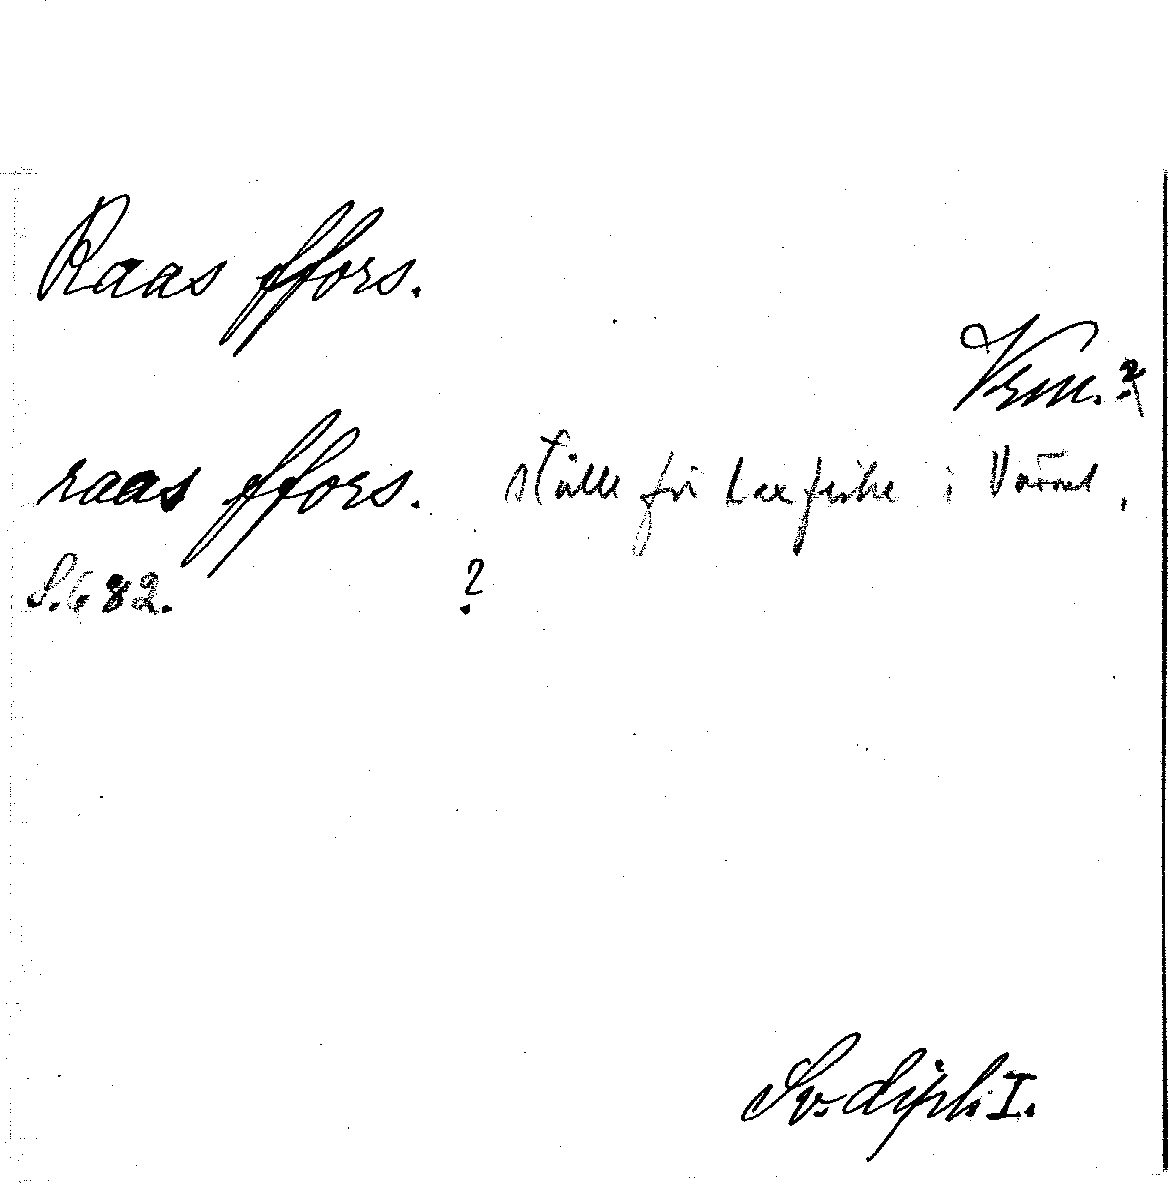 Raas ffors.
Vrm. ?
raas ffors. ställe för laxfiske i Värml.
S. 682. ?
Sv. dipl. I.